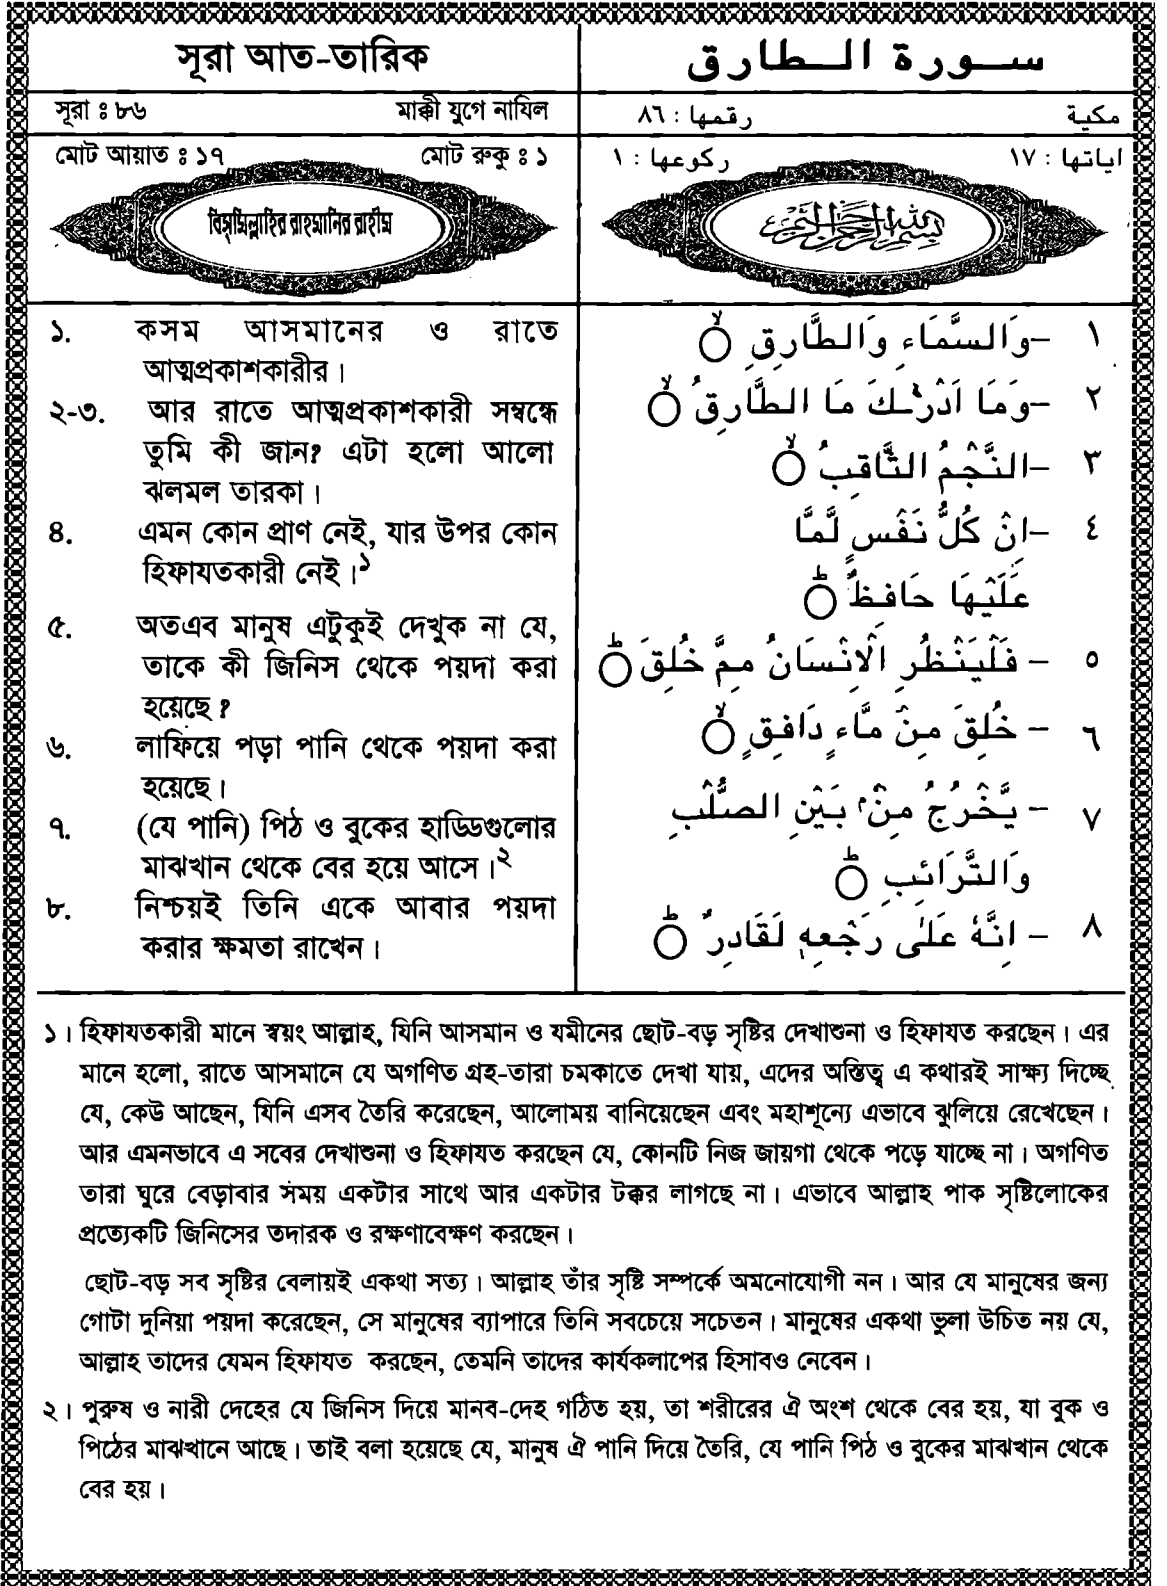 সূরা আত-তারিক
সূরা ঃ ৮৬ মাক্কী যুগে নাযিল
মোট আয়াত ঃ ১৭ মোট রুকু ঃ ১
বিসমিল্লাহির রাহমানির রাহীম
১. কসম আসমানের ও রাতে
আত্মপ্রকাশকারীর।
২-৩. আর রাতে আত্মপ্রকাশকারী সম্বন্ধে
তুমি কী জান? এটা হলো আলো
ঝলমল তারকা।
৪. এমন কোন প্রাণ নেই, যার উপর কোন
হিফাযতকারী নেই।১
৫. অতএব মানুষ এটুকুই দেখুক না যে,
তাকে কী জিনিস থেকে পয়দা করা
হয়েছে?
৬. লাফিয়ে পড়া পানি থেকে পয়দা করা
হয়েছে।
৭. (যে পানি) পিঠ ও বুকের হাড্ডিগুলোর
মাঝখান থেকে বের হয়ে আসে।২
৮. নিশ্চয়ই তিনি একে আবার পয়দা
করার ক্ষমতা রাখেন।
سورة الطارق
مكية رقمها : ٨٦
اياتها : ١٧ ركوعها : ١
بسم الله الرحمن الرحيم
١ –وَالسَّمَاءِ وَالطَّارِقِ ۙ
٢ –وَمَا اَدْرٰىكَ مَا الطَّارِقُ ۙ
٣ –النَّجْمُ الثَّاقِبُ ۙ
٤ –اِنْ كُلُّ نَفْسٍ لَّمَّا
عَلَيْهَا حَافِظٌ ؕ
٥ – فَلْيَنْظُرِ الْاِنْسَانُ مِمَّ خُلِقَ ؕ
٦ – خُلِقَ مِنْ مَّاءٍ دَافِقٍ ۙ
٧ – يَّخْرُجُ مِنْۢ بَيْنِ الصُّلْبِ
وَالتَّرَائِبِ ؕ
٨ – اِنَّهٗ عَلٰى رَجْعِهٖ لَقَادِرٌ ؕ
১। হিফাযতকারী মানে স্বয়ং আল্লাহ, যিনি আসমান ও যমীনের ছোট-বড় সৃষ্টির দেখাশুনা ও হিফাযত করছেন। এর
মানে হলো, রাতে আসমানে যে অগণিত গ্রহ-তারা চমকাতে দেখা যায়, এদের অস্তিত্ব এ কথারই সাক্ষ্য দিচ্ছে
যে, কেউ আছেন, যিনি এসব তৈরি করেছেন, আলোময় বানিয়েছেন এবং মহাশূন্যে এভাবে ঝুলিয়ে রেখেছেন।
আর এমনভাবে এ সবের দেখাশুনা ও হিফাযত করছেন যে, কোনটি নিজ জায়গা থেকে পড়ে যাচ্ছে না। অগণিত
তারা ঘুরে বেড়াবার সময় একটার সাথে আর একটার টক্কর লাগছে না। এভাবে আল্লাহ পাক সৃষ্টিলোকের
প্রত্যেকটি জিনিসের তদারক ও রক্ষণাবেক্ষণ করছেন।
ছোট-বড় সব সৃষ্টির বেলায়ই একথা সত্য। আল্লাহ তাঁর সৃষ্টি সম্পর্কে অমনোযোগী নন। আর যে মানুষের জন্য
গোটা দুনিয়া পয়দা করেছেন, সে মানুষের ব্যাপারে তিনি সবচেয়ে সচেতন। মানুষের একথা ভুলা উচিত নয় যে,
আল্লাহ তাদের যেমন হিফাযত করছেন, তেমনি তাদের কার্যকলাপের হিসাবও নেবেন।
২। পুরুষ ও নারী দেহের যে জিনিস দিয়ে মানব-দেহ গঠিত হয়, তা শরীরের ঐ অংশ থেকে বের হয়, যা বুক ও
পিঠের মাঝখানে আছে। তাই বলা হয়েছে যে, মানুষ ঐ পানি দিয়ে তৈরি, যে পানি পিঠ ও বুকের মাঝখান থেকে
বের হয়।